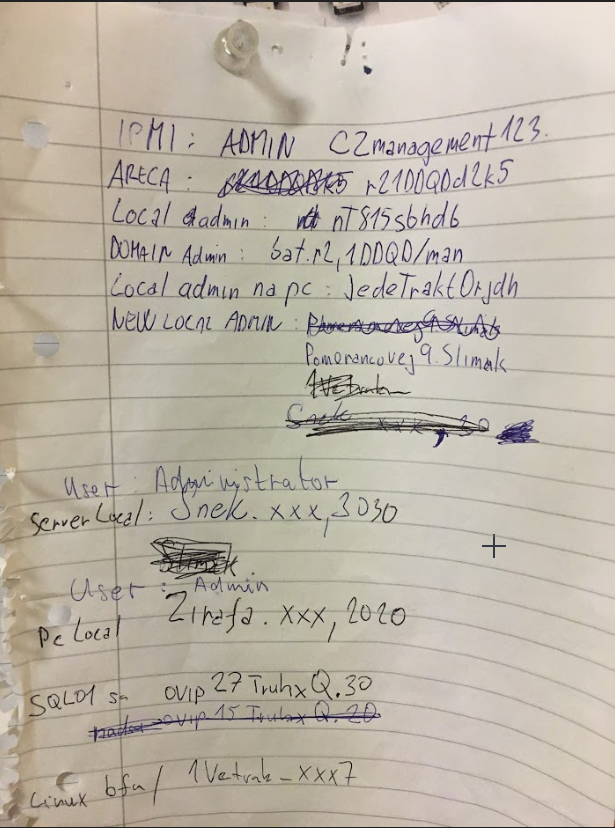 IPMI : ADMIN CZmanagement123.
ARECA : r21DDQDd2k5
Local admin : nT815sbhd6
DOMAIN Admin : bat.r2,1DDQD/man
Local admin na pc : JedeTraktOrjdh
NEW LOCAL ADMIN :
Pomerancovej9.Slimak
User : Administrator
Server Local : Snek.xxx,3030
User : Admin
Pc Local Zirafa.xxx,2020
SQL01 sa ovip27TruhxQ.30
ovip15TruhxQ.20
Linux bfu/ 1Vetrak-xxx7